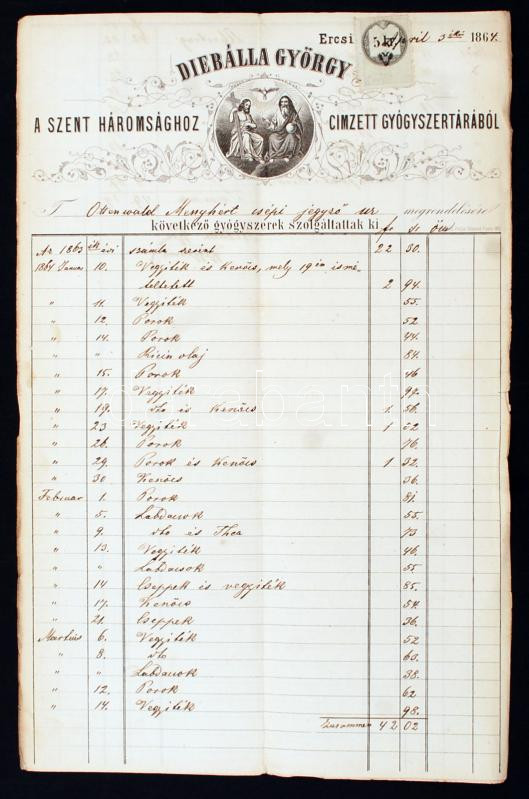 Ercsi April 3 1864.
5 kr
DIEBÁLLA GYÖRGY
A SZENT HÁROMSÁGHOZ CIMZETT GYÓGYSZERTÁRÁBÓL
T Ottenwald Menyhért csépi jegyző ur megrendelésére
következő gyógyszerek szolgáltattak ki fr
Az 1863 ik évi számla szerint 22 30.
1864 Januar 10. Vegyiték és Kenőcs, mely 19én ismé-
teltetett 2 94.
" 11. Vegyiték 55.
" 12. Porok 52
" 14. Porok 44.
" " Ricin olaj 84.
" 15. Porok 46
" 17. Vegyiték
" 19. dto és Kenőcs 1 56.
" 23 Vegyiték 1 02
" 26. Porok 76.
" 29. Porok és Kenőcs 1 32.
" 30. Kenőcs 36.
Februar 1. Porok 81
" 5. Labdacsok 55.
" 9. dto és Thea 73
" 13. Vegyiték 46.
" " Labdacsok 55
" 14 Cseppek és vegyiték 85.
" 17. Kenőcs 54.
" 21. Cseppek 36.
Martius 6. Vegyiték 52
" 8. dto 60.
" " Labdacsok 38.
" 12. Porok 62
" 14. Vegyiték 98.
Zusammen 42 02